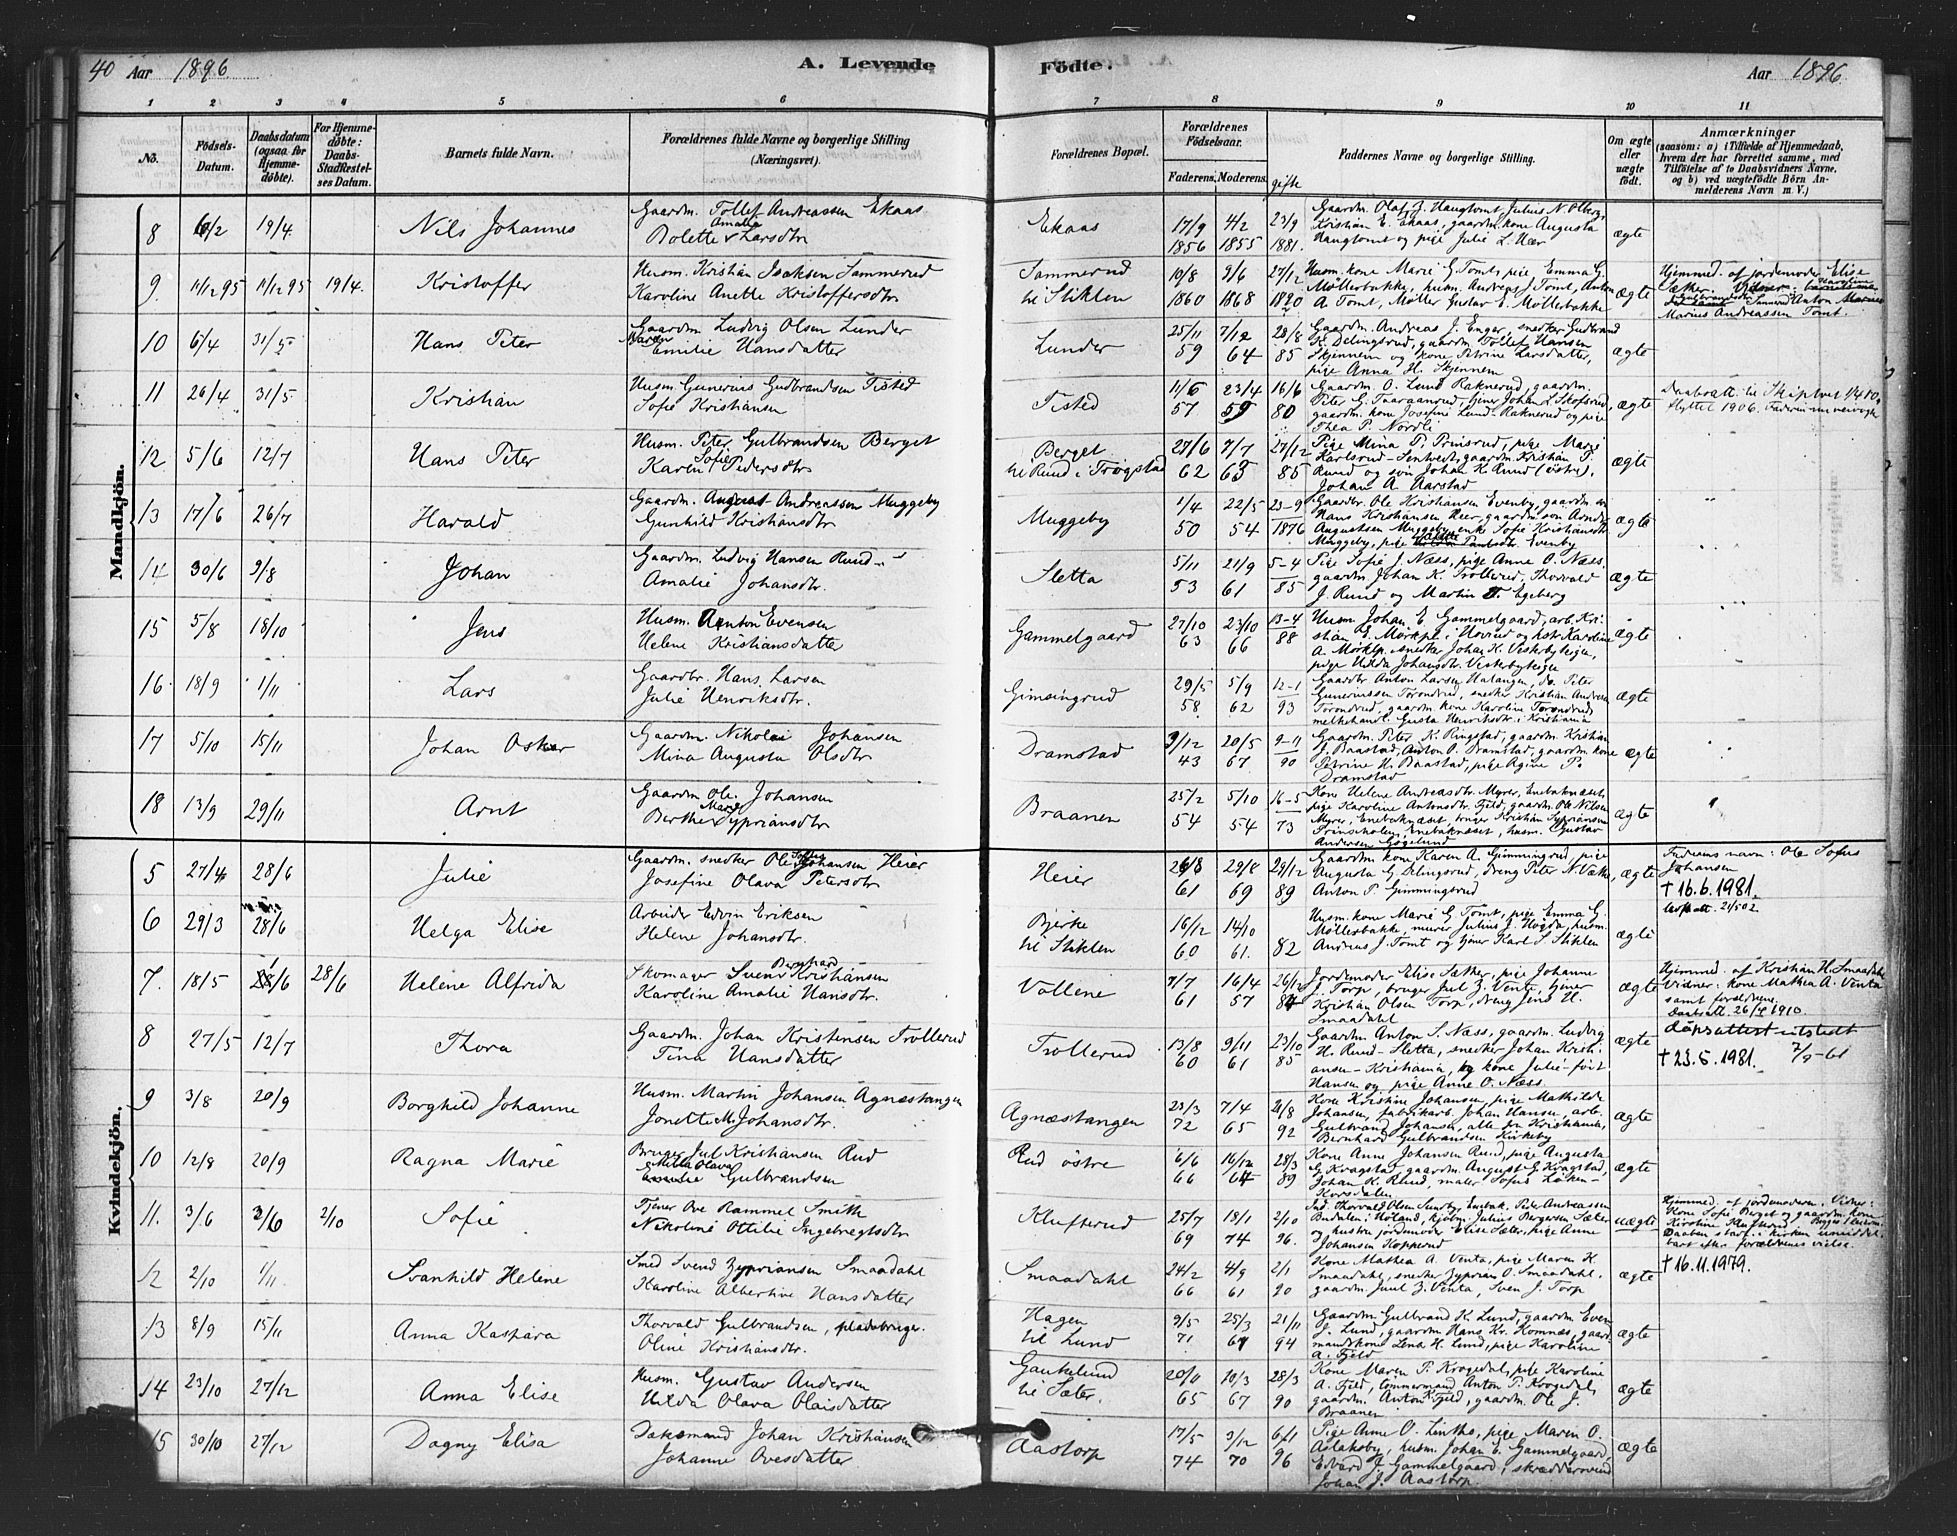 40 Aar 1896.
A. Levende
Födte.
Aar 1896.
1 2 3 4 5 6 7 8 9 10 11
No.
Födsels-
Datum.
Daabsdatum
(ogsaa for
Hjemme-
döbte).
For Hjemme-
döbte:
Daabs-
Stadfæstel-
ses Datum.
Barnets fulde Navn.
Forældrenes fulde Navne og borgerlige Stilling
(Næringsvei).
Forældrenes Bopæl.
Forældrenes
Födselsaar.
Faderens. Moderens. gifte
Faddernes Navne og borgerlige Stilling.
Om ægte
eller
uægte
födt.
Anmærkninger
(saasom: a) i Tilfælde af Hjemmedaab,
hvem der har forrettet samme, med
Tilföielse af to Daabsvidners Navne,
og b) ved uægtefödte Börn An-
melderens Navn m. V.)
Mandkjön.
8 6/2 19/4 Nils Johannes
Gaardm. Tollef Andreassen Ekaas
Bolette Amalie Larsdtr
Ekaas
17/9 1856 4/2 1855 23/9 1881.
Gaardm. Olaf J. Haugtomt, Julius N. Olberg,
Kristian E. Ekaas, gaardm. kone Augusta
Haugtomt og pige Julie L. Hær
ægte
9. 11/12 95 11/12 95 19/4. Kristoffer
Husm. Kristian Isaksen Sammerud
Karoline Anette Kristoffersdtr
Sammerud
til Stiklen
10/8 1860 9/6 1868 27/12
Husm. kone Marie G. Tomt, pige Emma G.
Möllerbakke, husm. Andreas J. Tomt, Anton
A. Tomt, Möller Gustav E. Möllebakke
ægte
Hjemmed. af jordemoder Elise
Sæther. Vidner:
Anton Marius
Marius Andreassen Tomt.
10 6/4 31/5 Hans Peter
Gaardm. Ludvig Olsen Lunder
Maren Emilie Hansdatter
Lunder
25/11 59 7/12 64 28/8 85
Gaardm. Andreas J. Enger, snedker Gudbrand
K. Delingsrud, gaardm. Tollef Hansen
Skjennem og kone Petrine Larsdatter,
pige Anna H. Skjennem
ægte
11 26/4 31/5 Kristian
Husm. Gunerius Gudbrandsen Tisted
Sofie Kristiansen
Tisted
11/6 57 23/4 59 16/6 80
Gaardm. O. Lund Raknerud, gaardm.
Peter G. Taaraanrud, tjener Johan L. Skofsrud,
gaardm. kone Josefine Lund-Raknerud og pige
Thea P. Nordli
ægte
Daabsatt. til Skiptvet 1/4 10,
flyttet 1906.
12 5/6 12/7 Hans Peter
Husm. Peter Gulbrandsen Berget
Karen Sofie Pedersdtr
Berget
til Ruud i Trøgstad
27/6 62 7/7 63 27/12 85
Pige Mina P. Prinsrud, pige Marie
Karlsrud-Sentvedt, gaardm. Kristian P.
Ruud og sön Johan K. Ruud (östre),
Johan A. Aarstad
ægte
13 17/6 26/7 Harald
Gaardm. August Andreassen Muggeby
Gunhild Kristiansdtr
Muggeby
1/4 50 22/5 54 23-9 1876
Gaardbr. Ole Kristiansen Evenby, gaardm. sön
Hans Kristiansen Heer, gaardm. son
Augustsen Muggeby, enke Sofie Kristiansdtr
Muggeby, pige Paulsdtr. Evenby
ægte
14 30/6 9/8 Johan
Gaardm. Ludvig Hansen Ruud
Amalie Johansdtr.
Sletta
5/11 53 21/9 61 5-4 85
Pige Sofie J. Næss, pige Anne O. Næss,
gaardm. Johan K. Trollerud, Thorvald
J. Ruud og Martin T. Egeberg
ægte
15 5/8 18/10 Jens
Husm. Anton Evensen
Helene Kristiansdatter
Gammelgaard
27/10 63 23/10 66 13-4 88
Husm. Johan E. Gammelgaard, arb. Kri-
stian E. Mørkpe i Hovind og hstr Karoline
A. Mørkp. snedker Johan K. Veskebyteigen,
pige Hilda Johansdtr. Veskebyteigen
ægte
16 18/9 1/11 Lars
Gaardbr. Hans Larsen
Julie Henriksdtr.
Gimsingrud
29/5 58 5/9 62 12-1 93
Gaardbr. Anton Larsen Hatangen, do. Peter
Guneriussen Torondrud, snedker Kristian Andersen
Torondrud, gaardm. kone Karoline Torondrud,
melkehandl. Gusta Henriksdtr. i Kristiania
ægte
17 5/10 15/11 Johan Oskar
Gaardm. Nikolai Johansen
Mina Augusta Olsdtr
Dramstad
3/12 43 20/5 67 9-11 90
Gaardm. Peter K. Ringstad, gaardm. Kristian
J. Baastad, Anton O. Dramstad, gaardm. kone
Petrine H. Baastad, pige Agine P.
Dramstad
ægte
18 13/9 29/11 Arnt
Gaardm. Ole Johansen
Berthe Marie Sypriansdtr
Braanen
25/2 54 5/10 54 16-5 73
Kone Helene Andreasdtr. Myrer, Enebaknæset,
pige Karoline Antonsdtr. Fjeld, gaardm. Ole Nilsen
Myrer, Enebaknæset, bruger Kristian Sypriansen
Prinsholen, Enebaknæset, husm. Gustav
Andersen Gögelund
ægte
Kvindekjön.
5 27/4 28/6 Julie
Gaardm. snedker Ole Sofus Johansen Heier
Josefine Olava Petersdtr
Heier
26/8 61 29/8 69 29/12 89
Gaardm. kone Karen A. Gimmingsrud, pige
Augusta G. Delingsrud, dreng Peter N. Vække,
Anton P. Gimmingsrud
ægte
Faderens navn: Ole Sofus
Johansen
† 16.6.1981.
6 29/3 28/6 Helga Elise
Arbeider Edvin Eriksen
Helene Johansdtr.
Bjerke
til Stiklen
16/12 60 14/10 61. 82
Husm. kone Marie G. Tomt, pige Emma G.
Möllerbakke, murer Julius J. Högda, husm.
Andreas J. Tomt og tjener Karl S. Stiklen
ægte
7. 18/5 28/6 28/6 Helene Alfrida
Skomager Svend Bernhard Kristiansen
Karoline Amalie Hansdtr.
Vollene
7/7 61 16/4 57 26/12 84
Jordemoder Elise Sæther, pige Johanne
J. Torp, bruger Jul Z. Venta, tjener
Kristian Olsen Torp, dreng Jens H.
Smaadahl
ægte
Hjemmed. af Kristian H. Smaadahl
Vidner: kone Mathea A. Venta
samt forældrene.
Daabsatt. 26/4 1910.
8 27/5 12/7 Thora
Gaardm. Johan Kristensen Trollerud
Tina Hansdatter
Trollerud
13/8 60 9/11 61 23/10 85
Gaardm. Anton S. Næss, gaardm. Ludvig
H. Ruud-Sletta, snedker Johan Kristi-
ansen-Kristiania, og kone Julie född
Hansen og pige Anne O. Næss.
ægte
döpsattest utstedt
7/9-61
† 23.5.1981.
9 3/8 20/9 Borghild Johanne
Husm. Martin Johansen Agnæstangen
Jonette M. Johansdtr.
Agnæstangen
23/3 72 7/4 65 21/8 92
Kone Kristine Johansen, pige Mathilde
Johansen, fabrikarb. Johan Hansen, arb.
Gulbrand Johansen, alle fra Kristiania,
Bernhard Gulbrandsen Kirkeby
ægte
10 12/8 20/9 Ragna Marie
Bruger Jul Kristiansen Rud
Milla Olava Gulbrandsen
Rud östre
6/6 66 16/12 64 28/3 89
Kone Anne Johansen Ruud, pige Augusta
G. Kragstad, gaardm. August G. Kragstad,
Johan K. Ruud, maler Sofus Løken-
Korsdalen
ægte
11. 3/6 3/6 2/10 Sofie
Tjener Ove Rammel Smith
Nikoline Otilie Engebregtsdtr
Klufterud
25/7 69 18/1 74 2/10 96.
Ind. Thorvald Olsen Sundby, Enebak. Peter Andreassen
Budalen i Höland, kjöbm. Julius Bergersen Sæter
og hustru jordemoder Elise Sæter, pige Anne
Johansen Kopperud
uægte
Hjemmed. af jordemoderen. Vidner:
Kone Sofie Berget og gaardm. kone
Kirstine Klufterud.
Daaben stadf. i kirken umiddel-
bart efter forældrenes vielse.
12 2/10 1/11 Svanhild Helene
Smed Svend Zypriansen Smaadahl
Karoline Albertine Hansdatter
Smaadahl
24/2 66 4/9 61 2/1 90
Kone Mathea A. Venta, pige Maren K.
Smaadahl, snedker Zyprian O. Smaadahl,
gaardm. Juul Z. Venta, Sven J. Torp
ægte
† 16.11.1979.
13 8/9 15/11 Anna Kaspara
Thorvald Gulbrandsen, pladsbruger.
Oline Kristiansdtr.
Hagen
til Lund
9/5 71 25/3 69 21/11 94
Gaardm. Gulbrand K. Lund, gaardm. Even
J. Lund, gaardm. Hans Kr. Komnæs, gaard
mandskone Lena H. Lund, pige Karoline
A. Fjeld
ægte
14 23/10 27/12 Anna Elise
Husm. Gustav Andersen
Hilda Olava Olaisdatter
Gaukelund
til Sæter.
20/11 65 10/3 67 28/3 90
Kone Maren P. Krogedal, pige Karoline
A. Fjeld, tömmermand Anton P. Krogedal,
gaardm. Anton K. Fjeld, gaardm. Ole J.
Braanen
ægte
15 30/10 27/12 Dagny Elisa
Daksmand Johan Kristiansen
Johanne Ovesdatter
Aastorp
17/5 74 3/12 70 6/1 96
Pige Anne O. Lintho, pige Maren O.
Aslaksby, husm. Johan E. Gammelgaard,
Edvard J. Gammelgaard, skræddersvend
Johan J. Aastorp
ægte